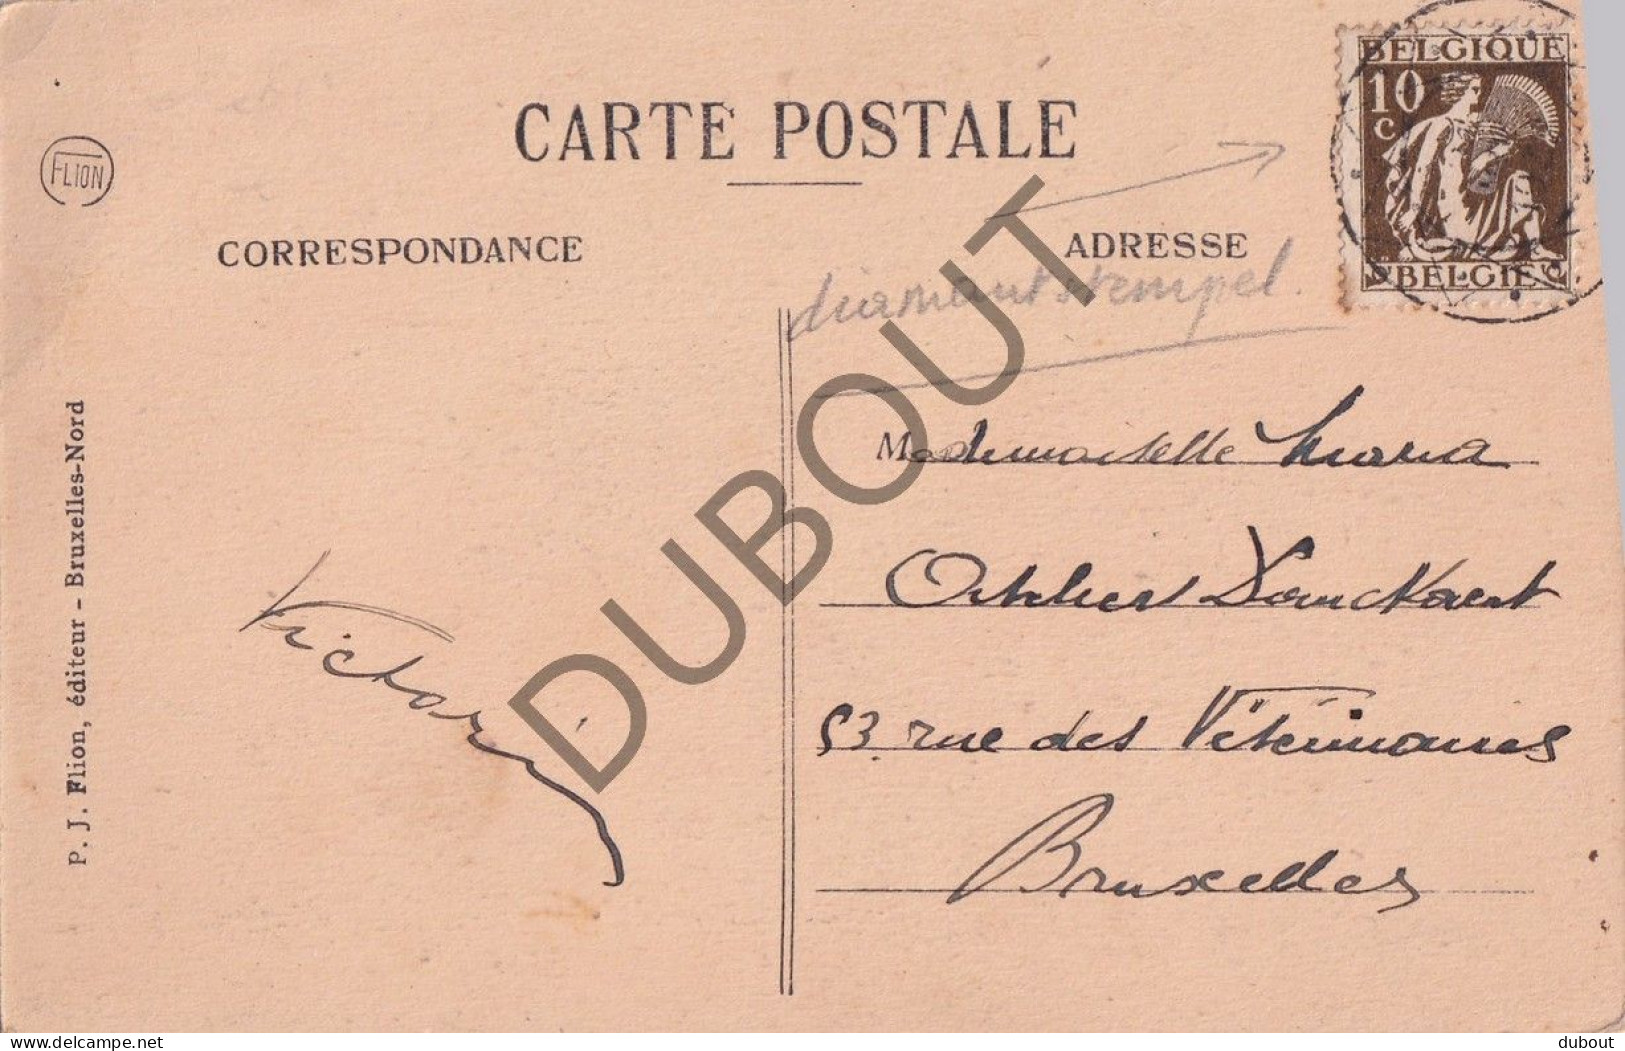 CARTE POSTALE
BELGIQUE
10
C
BELGIË
FLION
CORRESPONDANCE
ADRESSE
diamantstempel
P. J. Flion, éditeur - Bruxelles-Nord
Victor
Mademoiselle Maria
53 rue des Vétérinaires
Bruxelles
DUBOUT
delcampe.net
dubout